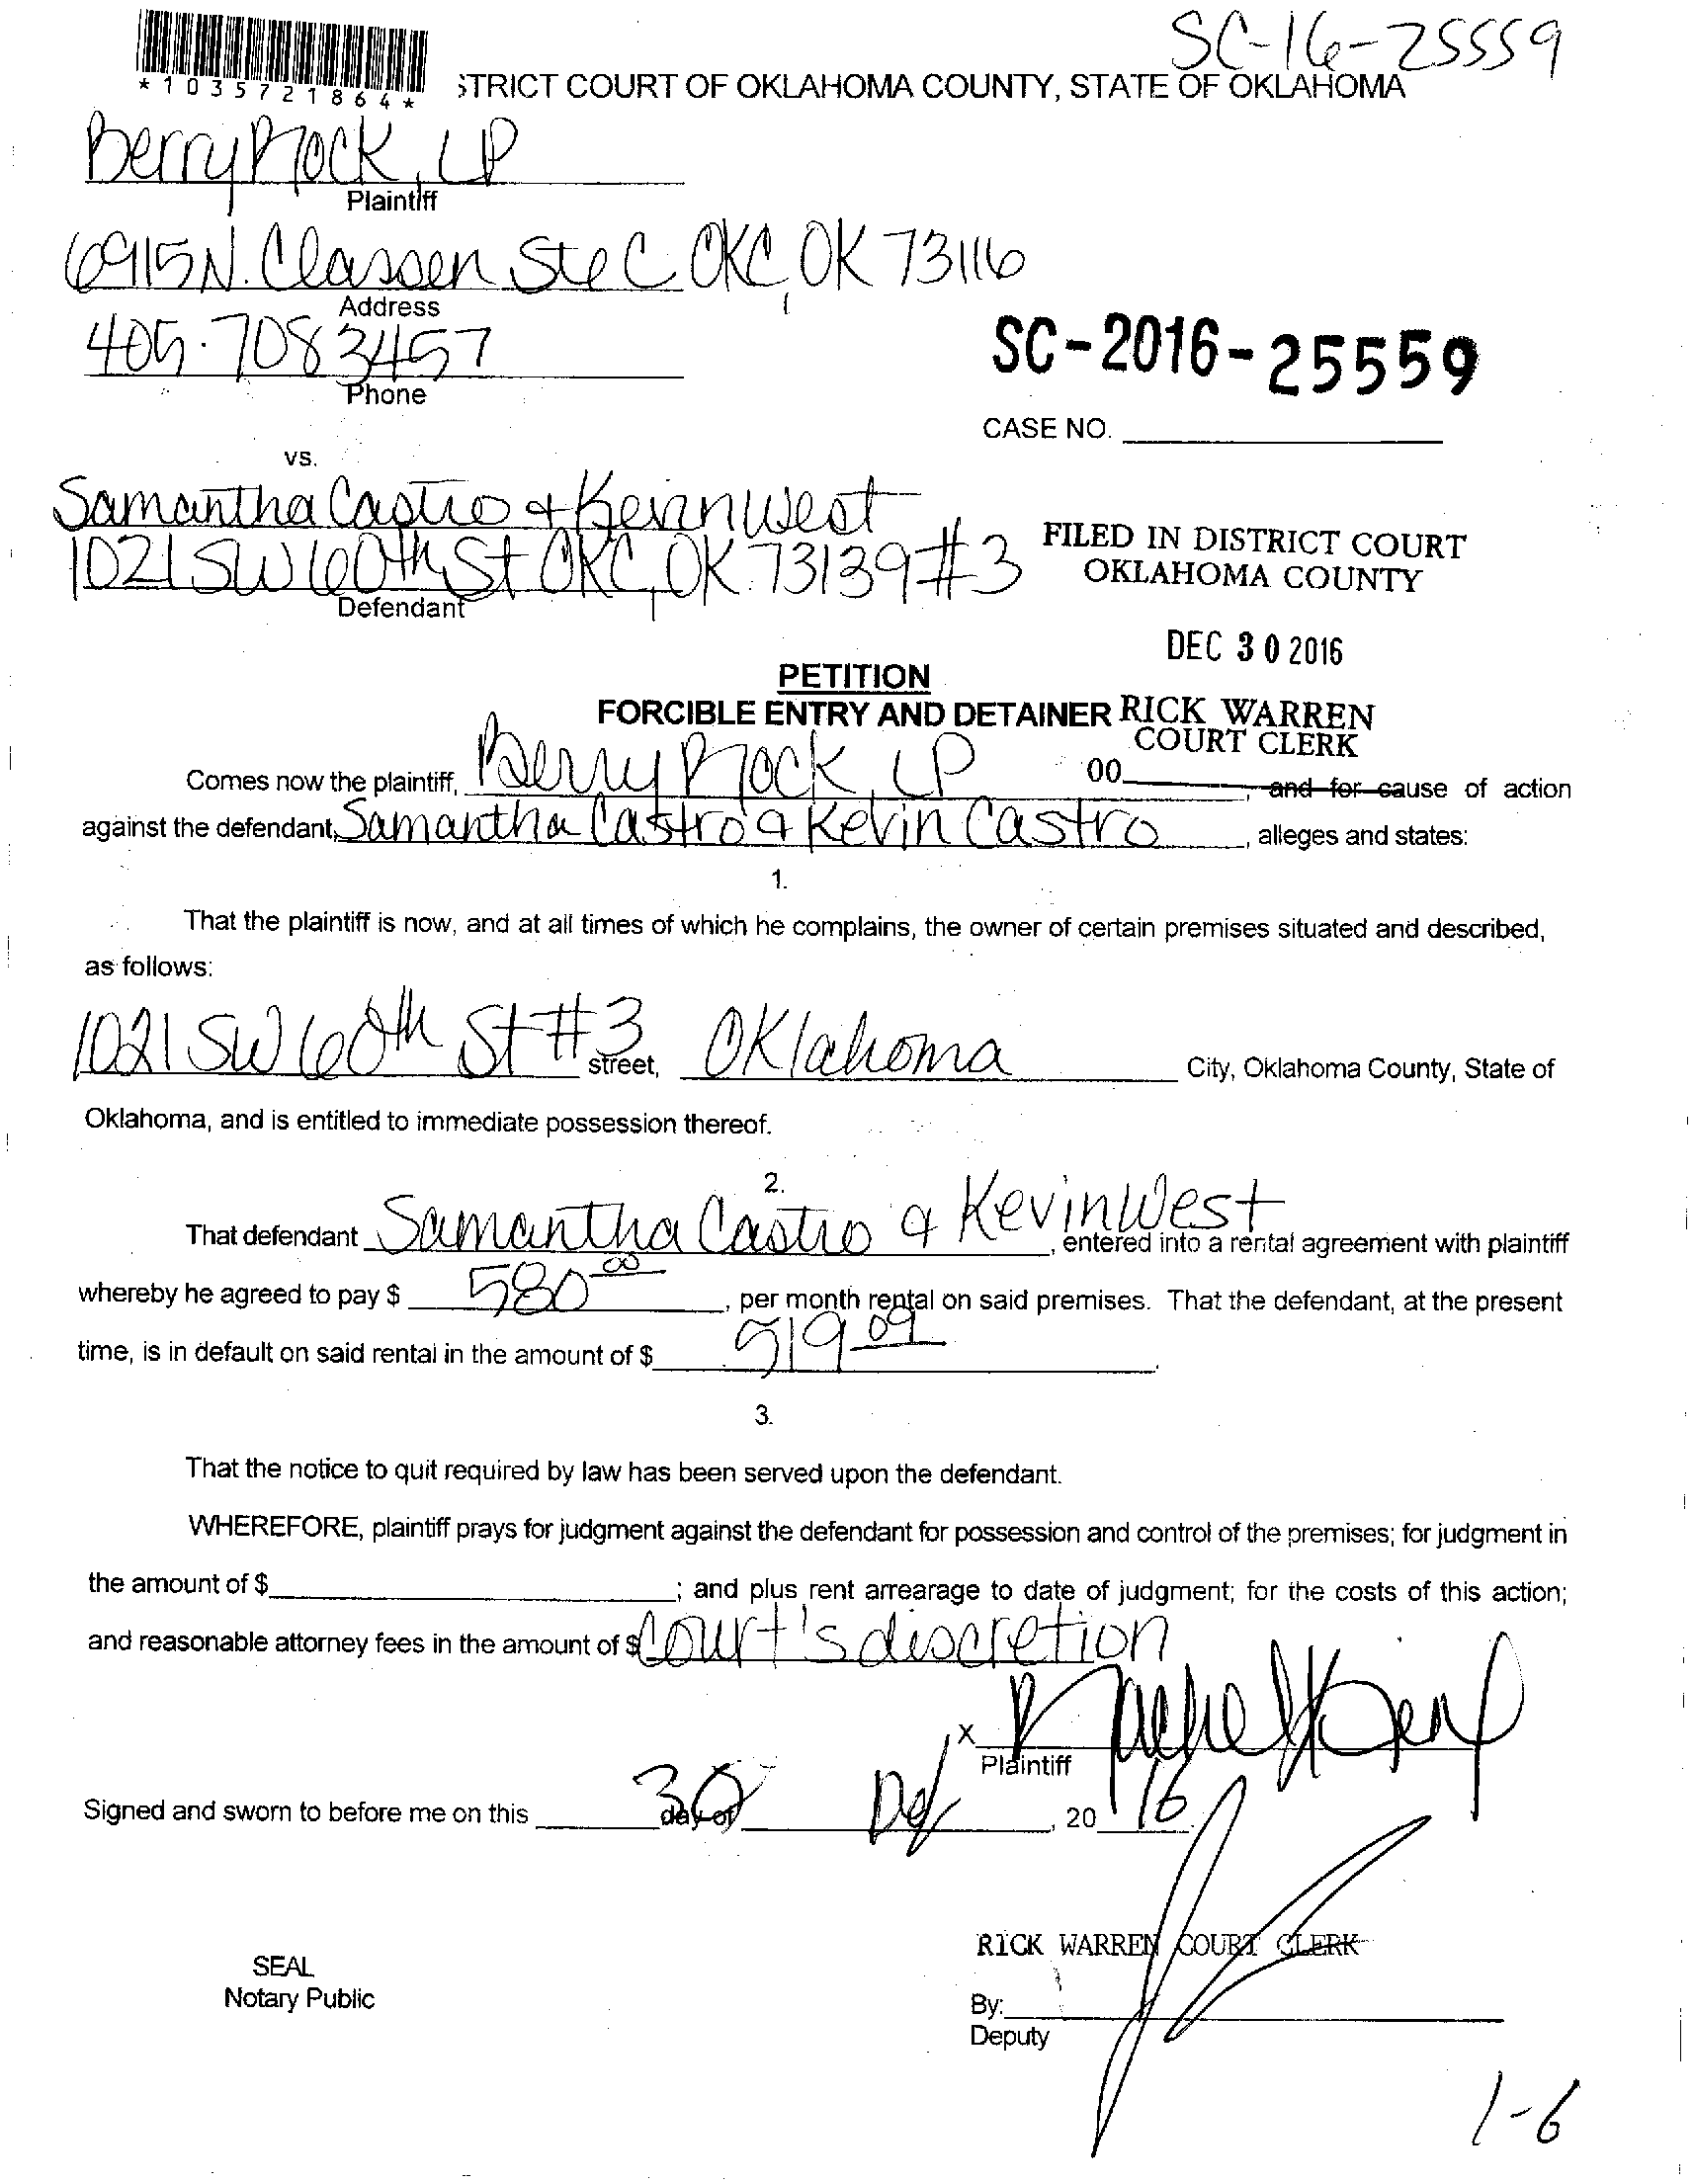 SC-16-25559
*1035721864*
STRICT COURT OF OKLAHOMA COUNTY, STATE OF OKLAHOMA
Berry Rock, LP
Plaintiff
6915 N. Classen Ste C OKC, OK 73116
Address
405-708 3457
Phone
SC-2016-25559
CASE NO.
vs.
Samantha Castro & Kevin West
1021 SW 60th St OKC, OK 73139 #3
Defendant
FILED IN DISTRICT COURT
OKLAHOMA COUNTY
DEC 30 2016
PETITION
FORCIBLE ENTRY AND DETAINER
RICK WARREN
COURT CLERK
00
Comes now the plaintiff, Berry Rock, LP, and for cause of action
against the defendant, Samantha Castro & Kevin Castro, alleges and states:
1.
That the plaintiff is now, and at all times of which he complains, the owner of certain premises situated and described,
as follows:
1021 SW 60th St #3 street, Oklahoma City, Oklahoma County, State of
Oklahoma, and is entitled to immediate possession thereof.
2.
That defendant Samantha Castro & Kevin West, entered into a rental agreement with plaintiff
whereby he agreed to pay $ 580 00, per month rental on said premises. That the defendant, at the present
time, is in default on said rental in the amount of $ 519 09.
3.
That the notice to quit required by law has been served upon the defendant.
WHEREFORE, plaintiff prays for judgment against the defendant for possession and control of the premises; for judgment in
the amount of $; and plus rent arrearage to date of judgment; for the costs of this action;
and reasonable attorney fees in the amount of $ Court's discretion
X
Plaintiff
Signed and sworn to before me on this 30 day of Dec, 20 16.
RICK WARREN COURT CLERK
SEAL
Notary Public
By:
Deputy
1-6